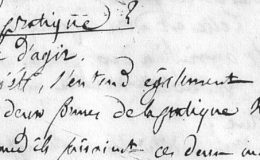 pratique ?
d'agir.
s'entend également
deux formes de la pratique
ils faisaient ces deux